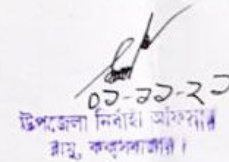 ০১-১১-২১
উপজেলা নির্বাহী অফিসার
রামু, কক্সবাজার।